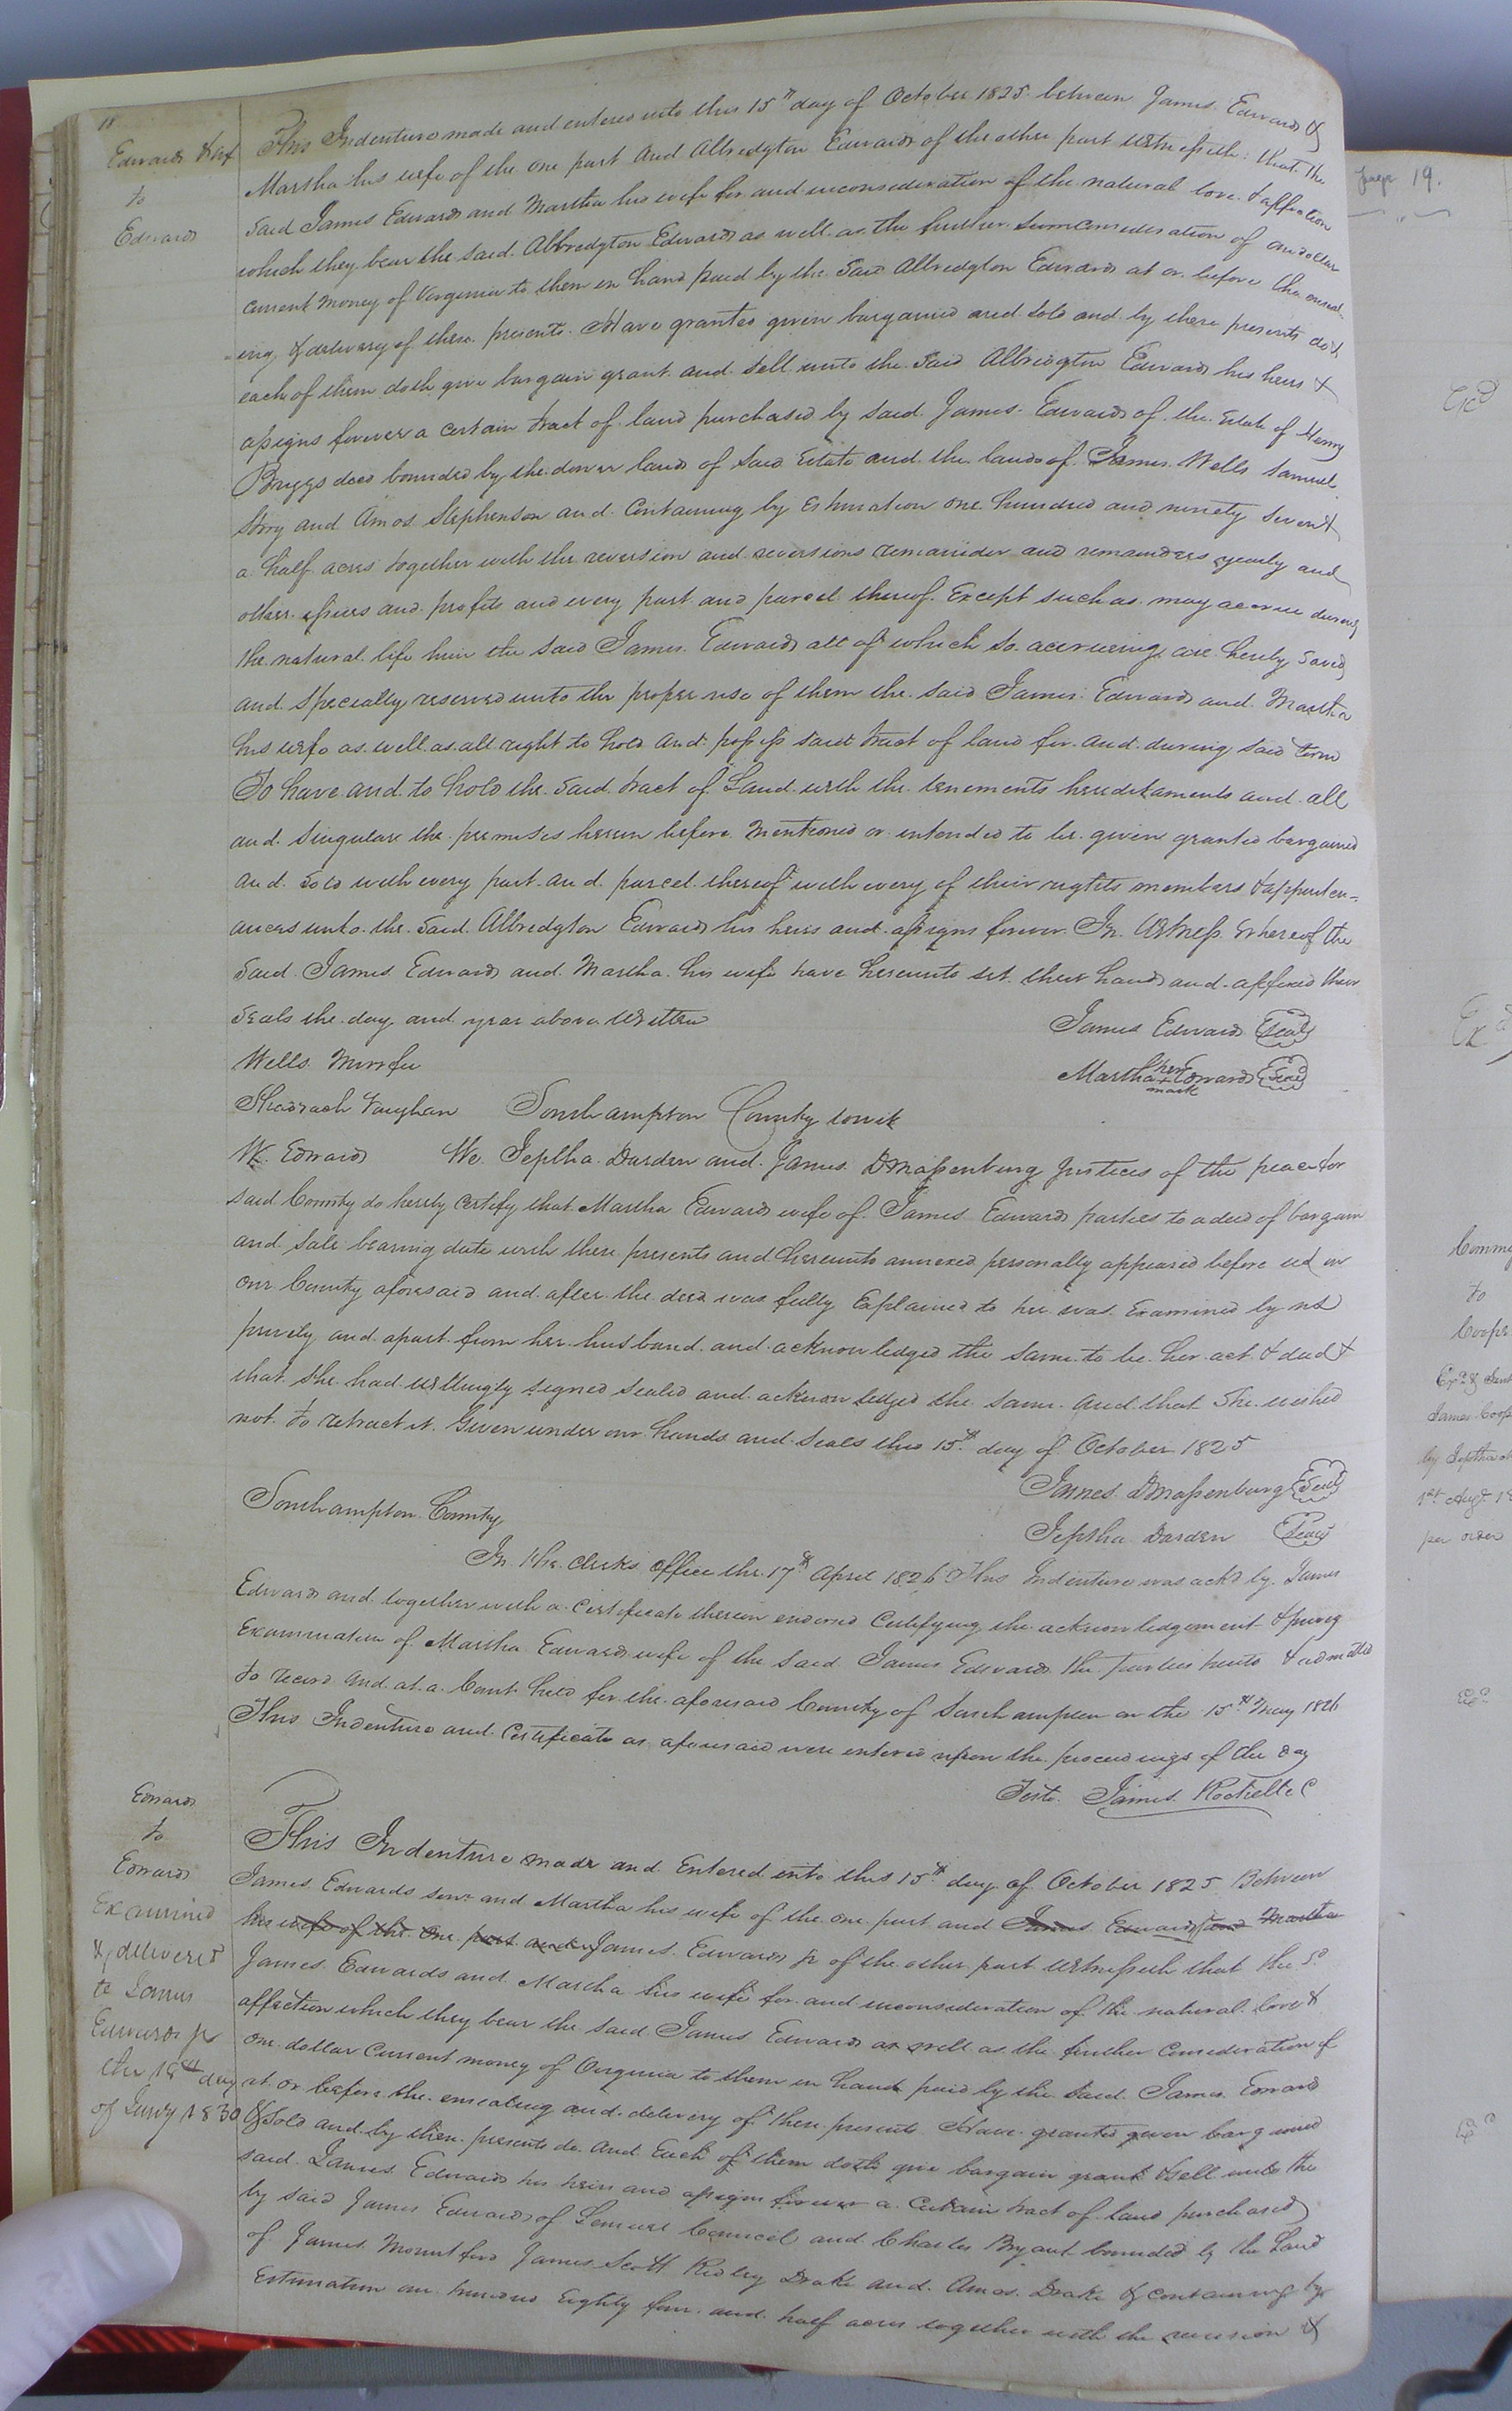 18
Edwards & wf
to
Edwards
This Indenture made and entered into this 15th day of October 1825 between James Edwards &
Martha his wife of the one part and Albredgton Edwards of the other part Witnesseth: that the
said James Edwards and Martha his wife for and inconsideration of the natural love & affection
which they bear the said Albredgton Edwards as well as the further consideration of one dollar
current money of Virginia to them in hand paid by the said Albredgton Edwards at or before the enseal-
=ing & delivery of these presents. Have granted given bargained and sold and by these presents doth
each of them doth give bargain grant and sell unto the said Albridgton Edwards his heirs &
assigns forever a certain tract of land purchased by said James Edwards of the estate of Henry
Briggs decd bounded by the dower land of said Estate and the lands of James Wells Samuel
Story and Amos Stephenson and Containing by estimation one hundred and ninety seven &
a half acres together with the reversion and reversions remainder and remainders yearly and
other issues and profits and every part and parcel thereof Except such as may accrue during
the natural life him the said James Edwards all of which so accrueing are hereby saved
and specially reserved unto the proper use of them the said James Edwards and Martha
his wife as well as all right to hold and possess said tract of land for and during said term
To have and to hold the said tract of Land with the tenements hereditaments and all
and singular the premises herein before mentioned or intended to be given granted bargained
and sold with every part and parcel thereof with every of their rights members & appurten=
ances unto the said Albredgton Edwards his heirs and assigns forever In Witness Whereof the
said James Edwards and Martha his wife have hereunto set their hands and affixed their
seals the day and year above Written
James Edwards Seal
Wells
her
Martha + Edwards Seal
mark
Shadrach Vaughan Southampton County towit
W. Edwards We Jeptha Darden and James D Massenburg Justices of the peace for
said County do hereby certify that Martha Edwards wife of James Edwards parties to a deed of bargain
and sale bearing date with these presents and hereunto annexed personally appeared before us in
our County aforesaid and after the deed was fully Explained to her was Examined by us
privily and apart from her husband and acknowledged the same to be her act & deed &
that she had willingly signed sealed and acknowledged the same and that she wished
not to retract it Given under our hands and seals this 15th day of October 1825
James D Massenburg Seal
Southampton County
Jeptha Darden Seal
In the Clerks Office the 17th April 1826 This Indenture was ackd by James
Edwards and together with a Certificate therein endorsed Certifying the acknowledgement & privy
Examination of Martha Edwards wife of the said James Edwards the parties hereto & admitted
to record and at a Court held for the aforesaid County of Southampton on the 15th May 1826
This Indenture and Certificate as aforesaid were entered upon the proceedings of the day
Teste James Rochelle C
Edwards
to
Edwards
Examined
& deliverd
to James
Edwards jr
the 18th day
of Jany 1830
This Indenture made and Entered into this 15th day of October 1825 Between
James Edwards senr and Martha his wife of the one part and James Edwards and Martha
his wife of the one part and James Edwards jr of the other part Witnesseth that the sd
James Edwards and Martha his wife for and inconsideration of the natural love &
affection which they bear the said James Edwards as well as the further consideration of
one dollar Current money of Virginia to them in hand paid by the said James Edwards
at or before the ensealing and delivery of these presents Have granted given bargained
& sold and by these presents do and Each of them doth give bargain grant & sell unto the
said James Edwards his heirs and assigns forever a Certain tract of land purchased
by said James Edwards of Lemuel Council and Charles Bryant bounded by the Land
of James James Scott Ridley Drake and Amos Drake & containing by
Estimation one hundred Eighty four and half acres together with the reversion &
page 19.
Exd
Comm
to
Coope
James Coop
by Jeptha
1st Augt 18
per order